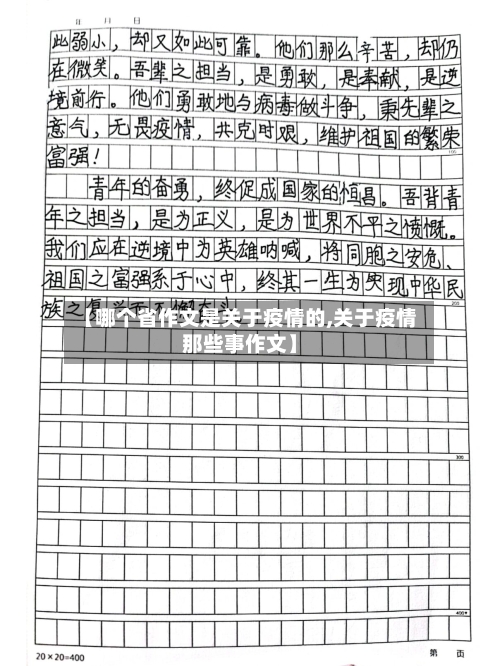 年 月 日
此弱小，却又如此可靠。他们那么辛苦，却仍
在微笑。吾辈之担当，是勇敢，是奉献，是逆
境前行。他们勇敢地与病毒做斗争，秉先辈之
意气，无畏疫情，共克时艰，维护祖国的繁荣
富强！
100
青年的奋勇，终促成国家的恒昌。吾背青
年之担当，是为正义，是为世界不平之愤慨。
我们应在逆境中为英雄呐喊，将同胞之安危、
祖国之富强系于心中，终其一生为实现中华民
族之复兴而不懈奋斗
200
【哪个省作文是关于疫情的,关于疫情
那些事作文】
300
400
20×20=400
第 页